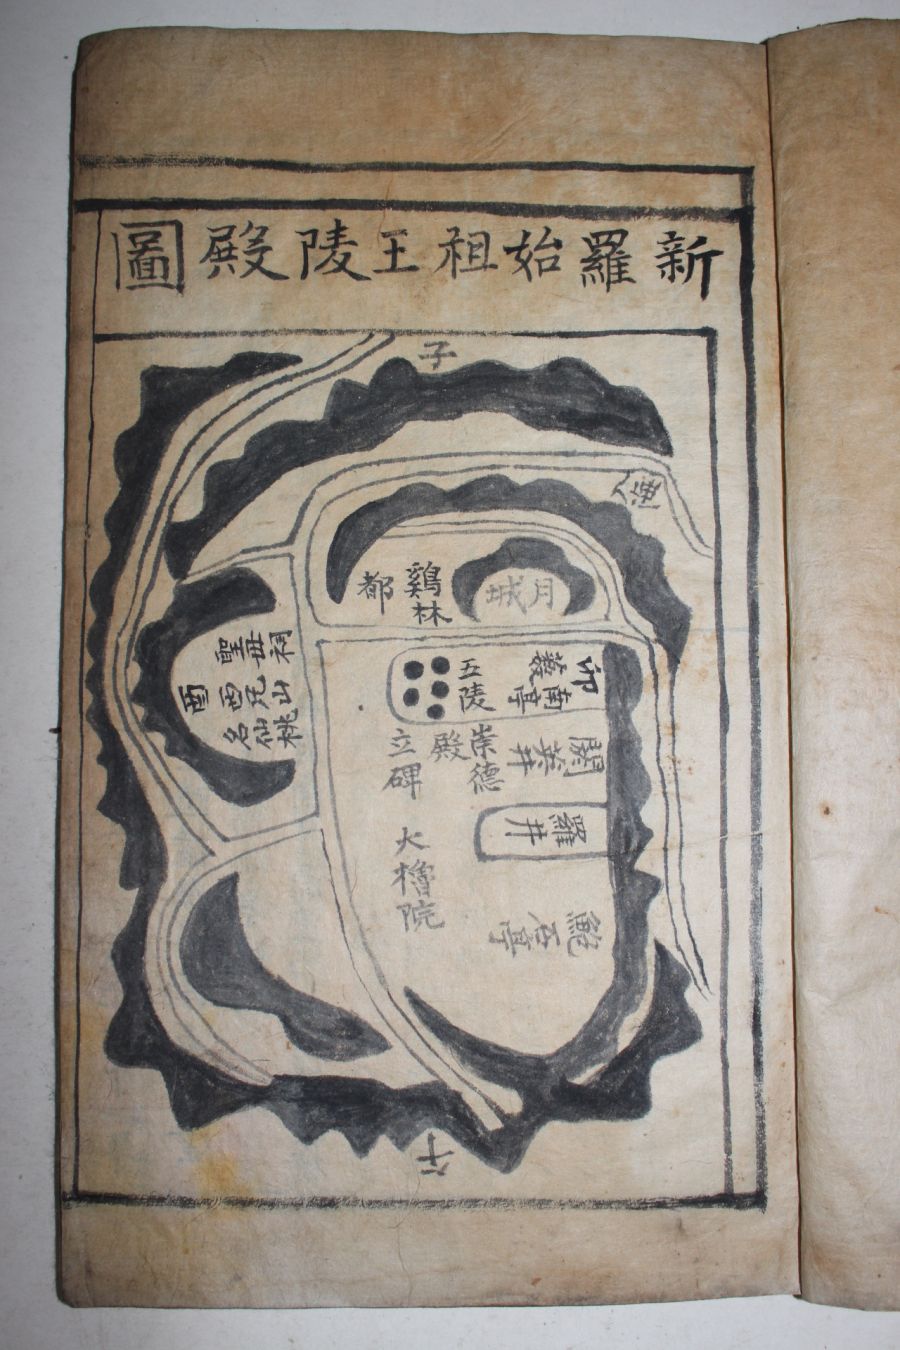 新羅始祖王陵殿圖
子
月城
鷄林
都
聖母祠
西兄山
名仙桃
酉
五陵
卯
南亭
崇德殿
立碑
閼英井
羅井
大櫓院
鮑石亭
午